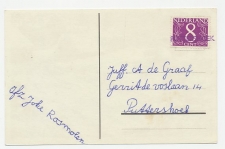 NEDERLAND
8
Juff. A de Graaf
Gerrit de voslaan. 14.
Puttershoek
Afz J de Rosmolen